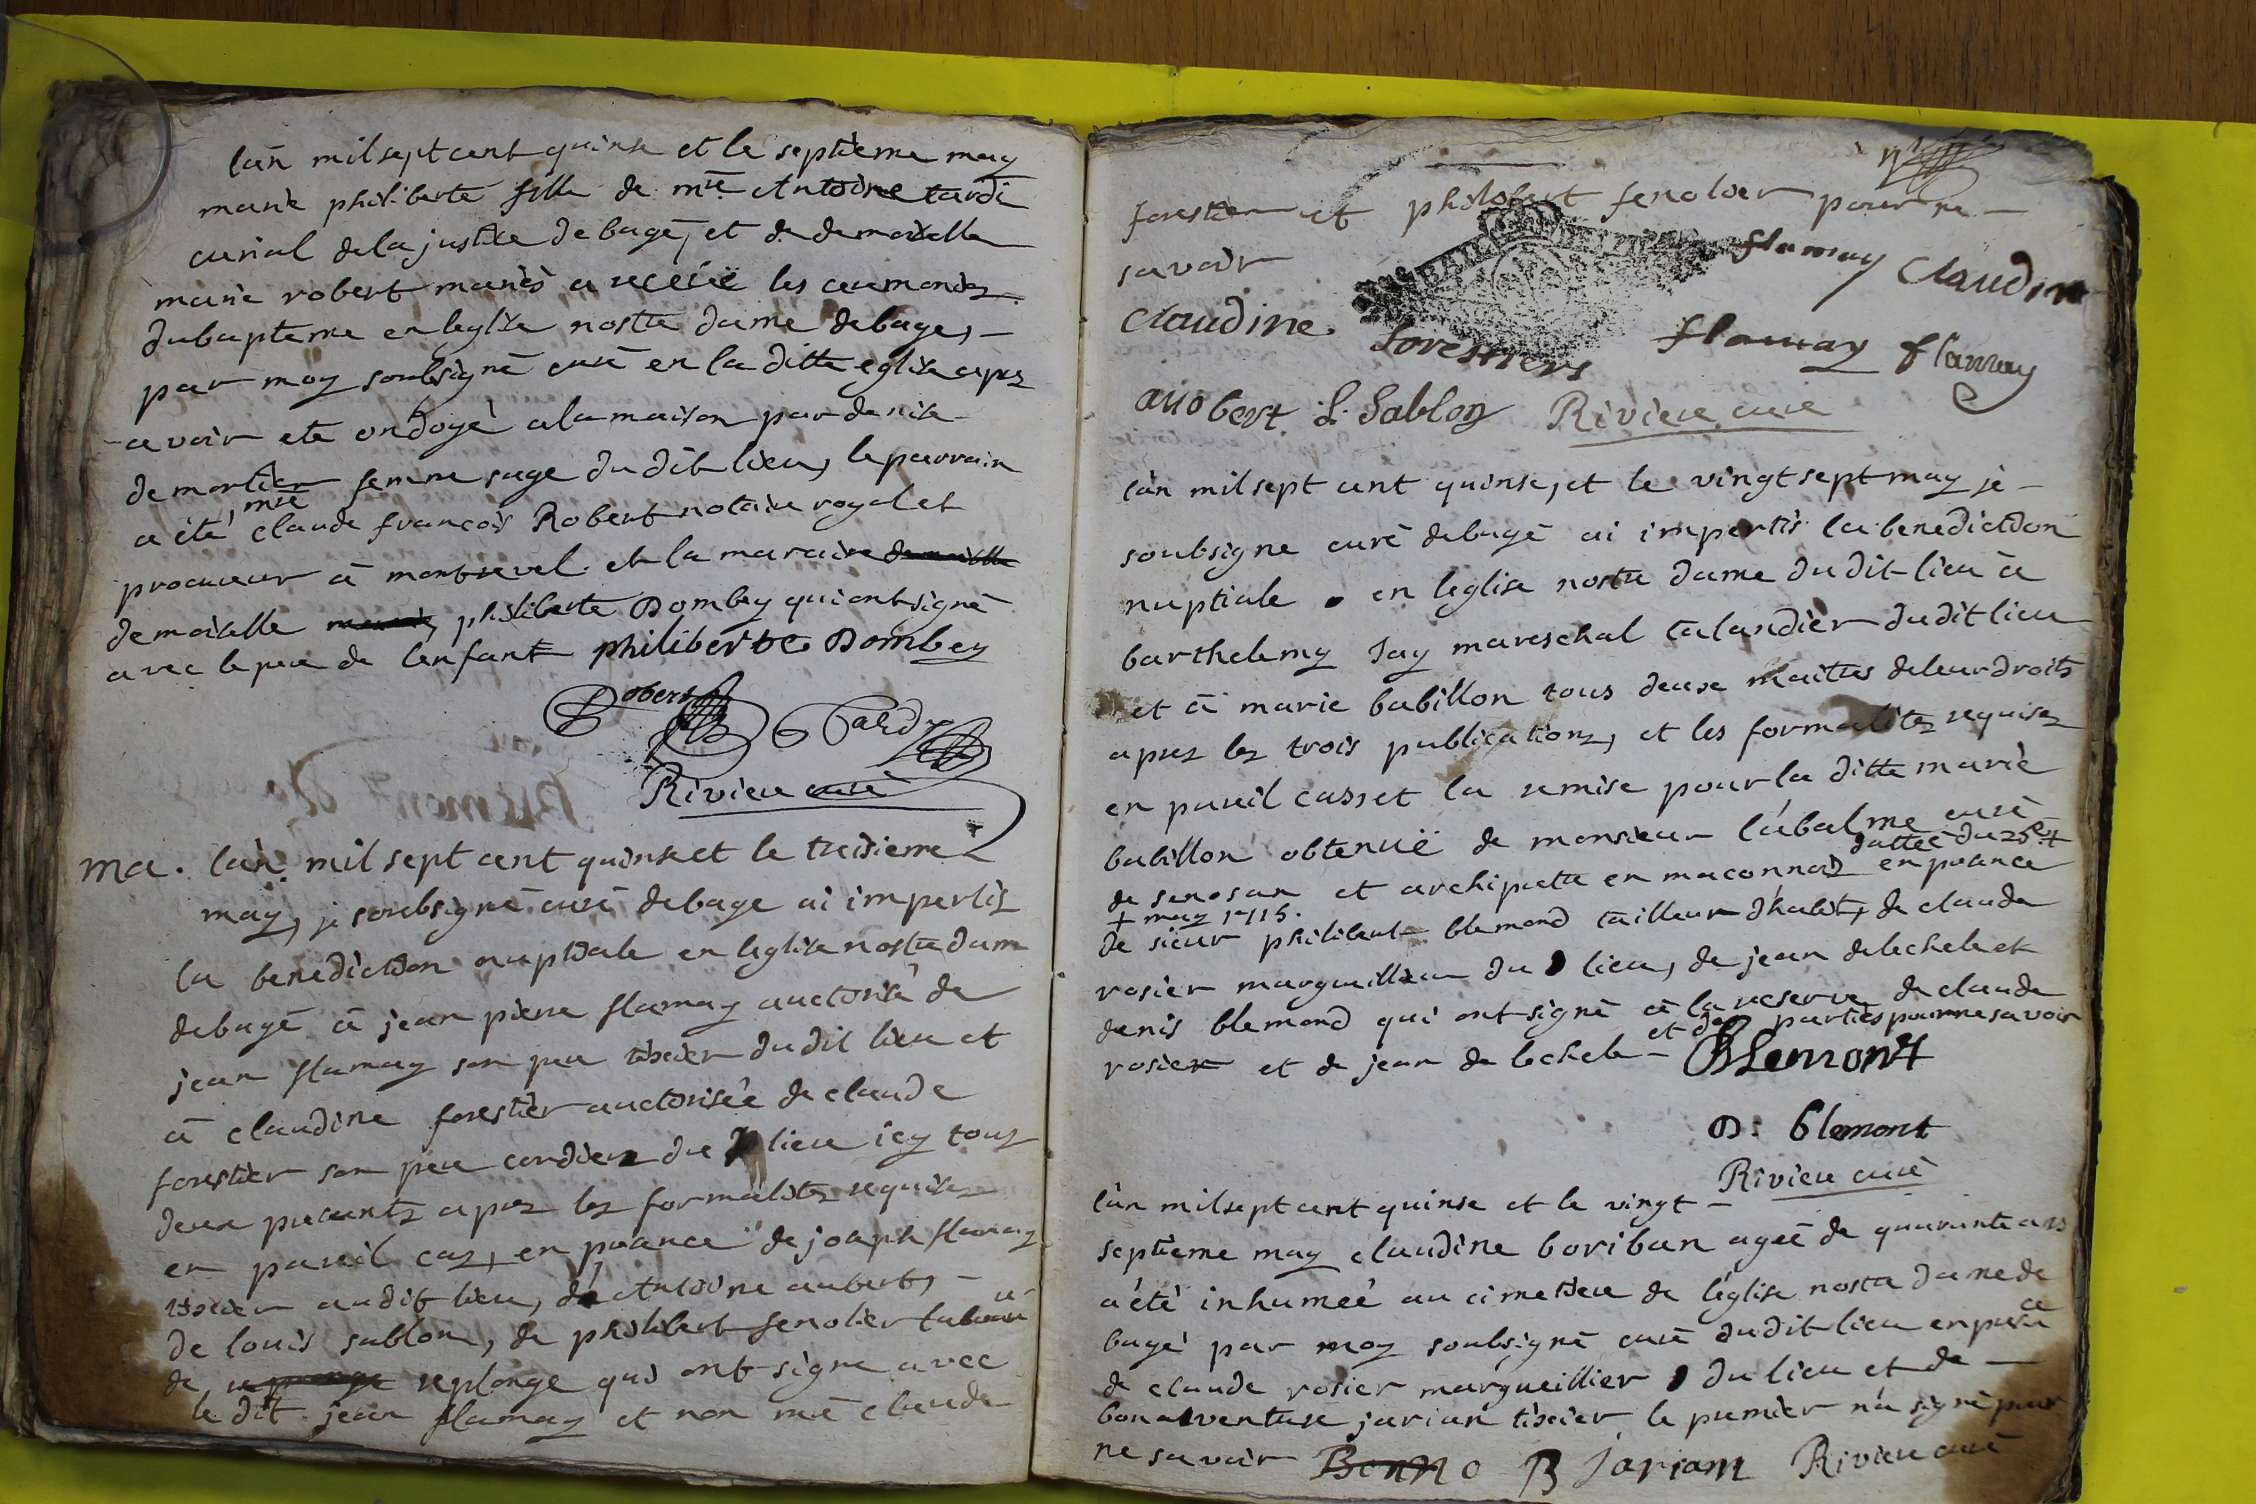 l'an mil sept cent quinse et le septieme may
marie philiberte fille de mre Antoine tardi
curial de la justice de bagé, et de demoiselle
marie robert mariés a receüe les ceremonies
du bapteme en leglise nostre dame de bagé,
par moy soubsigné curé en la ditte eglise apres
avoir ete ondoyé a la maison par denise
demortier femme sage du dit lieu, le parrain
a été mre claude françois Robert notaire royal et
procureur a montrevel et la maraine
demoiselle philiberte Dombey qui ont signé
avec le pere de lenfant philiberte Dombey
Robert Tardy
Riviere curé
ma. l'an mil sept cent quinse et le treisieme
may, je soubsigné curé de bagé ai impertis
la benediction nuptiale en leglise nostre dame
de bagé a jean pierre flamay auctorisé de
jean flamay son pere tixier du dit lieu et
a claudine forestier auctorisée de claude
forestier son pere cordier du lieu icy tous
deux presents apres les formalites requises
en pareil cas, en presence de joseph flamay
tixier au dit lieu, de Antoine aubert,
de louis sablon, de philibert fenolier
de replonge qui ont signé avec
le dit jean flamay et non claude
forestier et philibert fenolier pour ne
savoir flamay Claudine
claudine forestiers flamay flamay
aubert L. Sablon Riviere curé
l'an mil sept cent quinse, et le vingt sept may je
soubsigné curé de bagé ai impertis la benediction
nuptiale en leglise nostre dame du dit lieu a
barthelemy Jay mareschal talandier du dit lieu
et a marie babillon tous deux maitres de leur droits
apres les trois publications, et les formalites requises
en pareil cas et la remise pour la ditte marie
babillon obtenüe de monsieur labalme curé
dattée du 25e +
de senosan et archipretre en maconnois en presence
+ may 1715.
de sieur philibert blemond tailleur d'habit, de claude
rosier marguillier du lieu, de jean delechele et
denis blemond qui ont signé a la reserve de claude
et des parties pour ne savoir
rosier et de jean de lechele Blemont
D. blemont
Riviere curé
l'an mil sept cent quinse et le vingt
septieme may claudine boriban agée de quarante ans
a été inhumée au cimetiere de l'eglise nostre dame de
bagé par moy soubsigné curé du dit lieu en presence
de claude rosier margueillier du lieu et de
bonaventure jarian tixier le premier n'a signé pour
ne savoir B Jariam Riviere curé